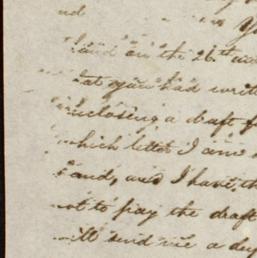 nd
hand on the 26th
that you had writ
enclosing a draft f
which letter I am
hand, and I have th
not to pay the draft
will send me a dup